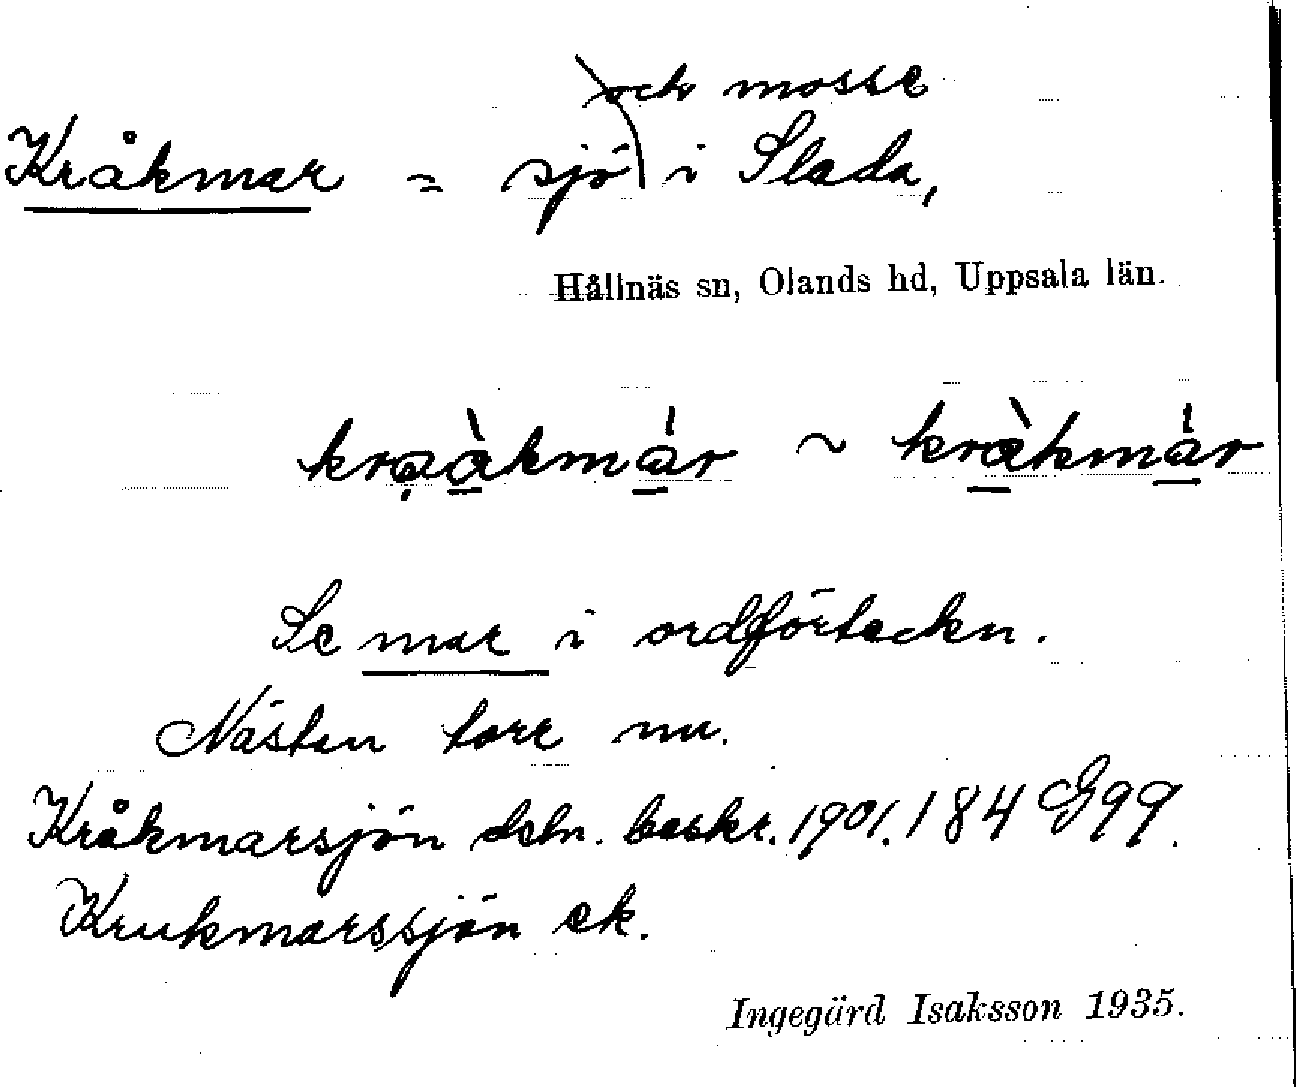 och mosse
Kråkmar = sjö i Slada,
Hållnäs sn, Olands hd, Uppsala län.
krạà̱kma̱̍r ~ krà̱kma̱̍r
Se mar i ordförteckn.
Nästan torr nu.
Kråkmarsjön dsbr. beskr. 1901. 184 G99.
Krukmarssjön ek.
Ingegärd Isaksson 1935.